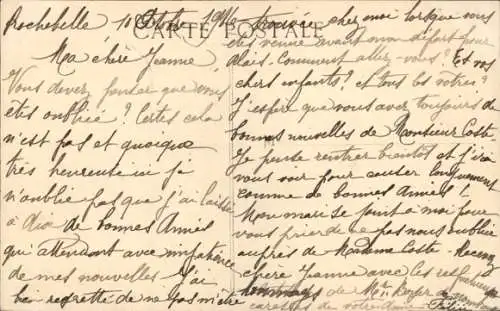 Rochebelle, 11 Octobre 1916
CARTE POSTALE
Ma chère Jeanne,
Vous devez penser que vous
êtes oubliée? Certes cela
n'est pas et quoique
très heureuse ici je
n'oublie pas que j'ai laissé
à de bonnes Amies
qui attendent avec impatience
de mes nouvelles. J'ai
bien regretté de ne pas m'être
trouvée chez moi lorsque vous
êtes venue avant mon départ pour
Alais. Comment allez-vous? Et vos
chers enfants? et tous les vôtres?
J'espère que vous avez toujours de
bonnes nouvelles de Monsieur Coste.
Je pense rentrer bientôt et j'irai
vous voir pour causer longuement
comme de bonnes Amies!
Mon mari se joint à moi pour
vous prier de ne pas nous oublier
auprès de Madame Coste. Recevez
chère Jeanne avec les
hommages de Mr. Boyer
caresses de votre Amie